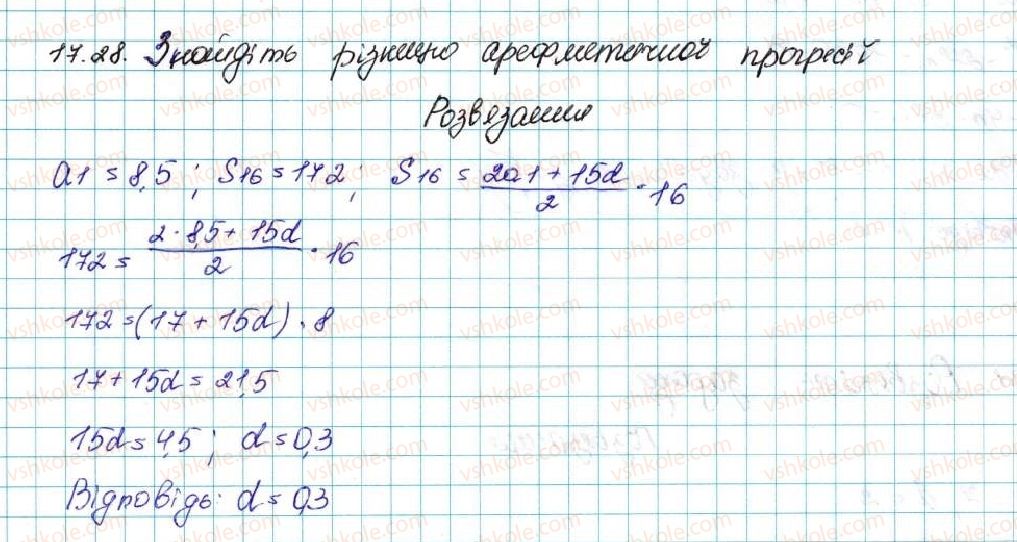 17.28. Знайдіть різницю арефметичної прогресії
Розвязання
a1 = 8,5 ; S16 = 172 ; S16 = \frac{2a1 + 15d}{2} · 16
172 = \frac{2 · 8,5 + 15d}{2} · 16
172 = (17 + 15d) · 8
17 + 15d = 21,5
15d = 4,5 ; d = 0,3
Відповідь: d = 0,3